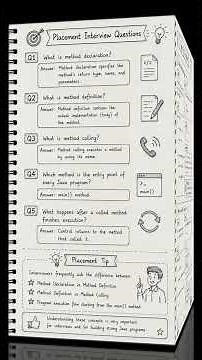 Placement Interview Questions
Q1
What is method declaration?
Answer: Method declaration specifies the
method's return type, name, and
parameters.
Q2
What is method definition?
Answer: Method definition contains the
actual implementation (body) of
the method.
Q3
What is method calling?
Answer: Method calling executes a method
by using its name.
Q4
Which method is the entry point of
every Java program?
Answer: main() method.
Q5
What happens after a called method
finishes execution?
Answer: Control returns to the method
that called it.
Placement Tip
Interviewers frequently ask the difference between:
Method Declaration vs Method Definition
Method Definition vs Method Calling
Program execution flow starting from the main() method
Understanding these concepts is very important
for interviews and for building strong Java programs